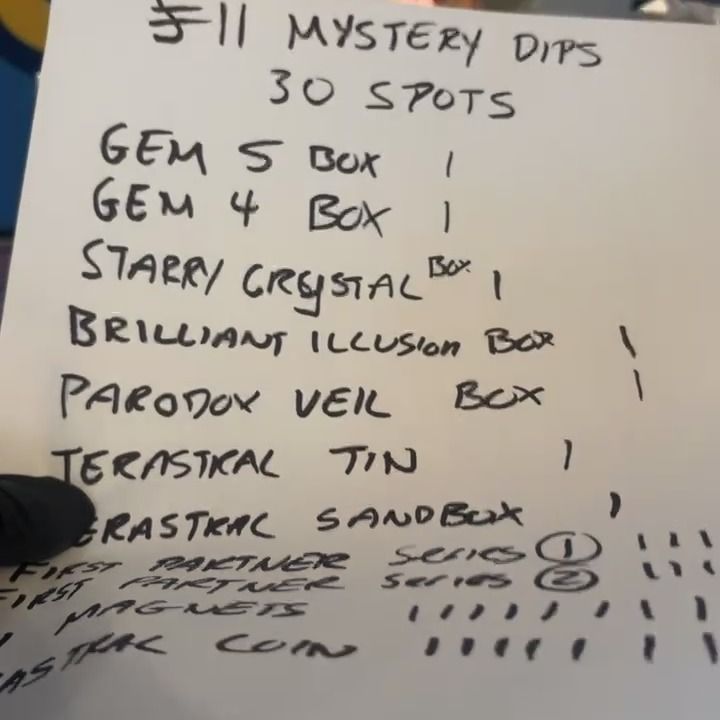 #11 MYSTERY DIPS
30 SPOTS
GEM 5 BOX 1
GEM 4 BOX 1
STARRY CRYSTAL BOX 1
BRILLIANT ILLUSION BOX 1
PARODOX VEIL BOX 1
TERASTRAL TIN 1
ERASTRAL SANDBOX 1
FIRST PARTNER SERIES 1 | | |
FIRST PARTNER SERIES 2 | | |
MAGNETS | | | | | | |
ASTRAL COIN | | | | | | |